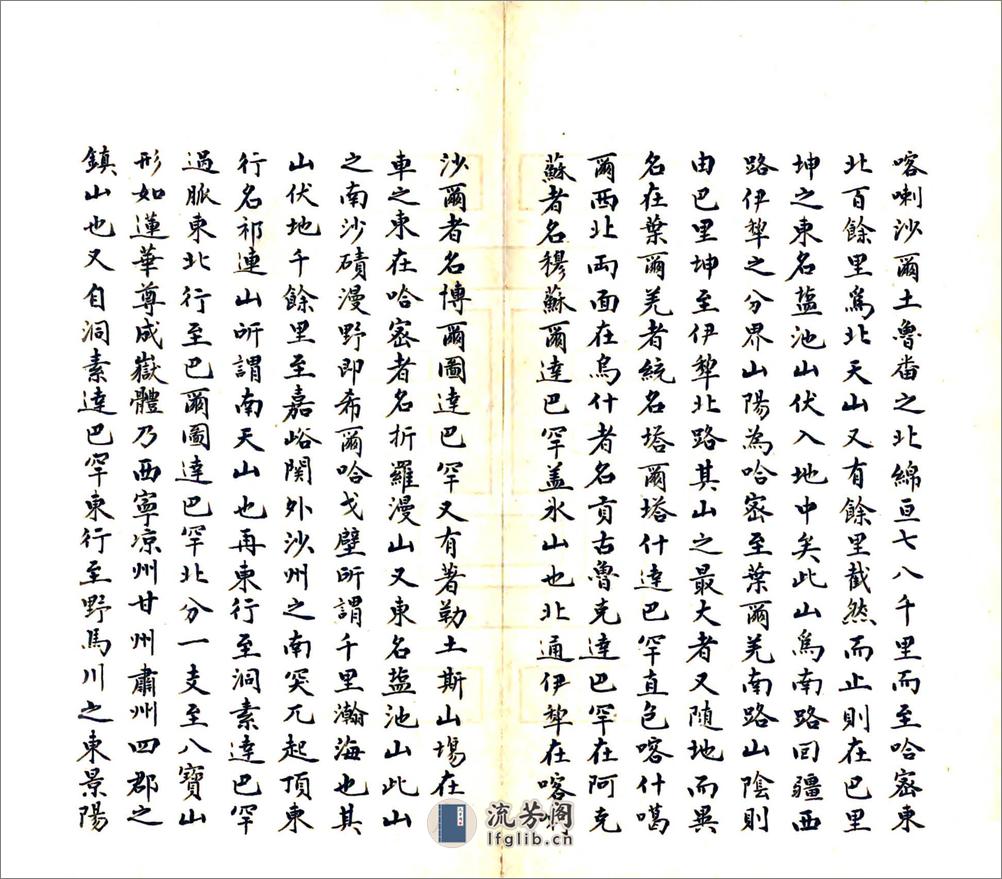 喀喇沙爾土魯番之北綿亘七八千里而至哈密東
北百餘里爲北天山又有餘里截然而止則在巴里
坤之東名鹽池山伏入地中矣此山爲南路回疆西
路伊犂之分界山陽為哈密至葉爾羌南路山陰則
由巴里坤至伊犂北路其山之最大者又随地而異
名在葉爾羌者統名塔爾塔什達巴罕直包喀什噶
爾西北兩面在烏什者名貢古魯克達巴罕在阿克
蘇者名穆蘇爾達巴罕盖氷山也北通伊犂在喀
沙爾者名博爾圖達巴罕又有著勒土斯山塲在
車之東在哈密者名折羅漫山又東名鹽池山此山
之南沙磧漫野即希爾哈戈壁所謂千里瀚海也其
山伏地千餘里至嘉峪関外沙州之南突兀起頂東
行名祁連山所謂南天山也再東行至洞素達巴罕
過脈東北行至巴爾圖達巴罕北分一支至八寶山
形如蓮華尊成嶽體乃西寧凉州甘州肅州四郡之
鎮山也又自洞素達巴罕東行至野馬川之東景陽
流芳阁
lfglib.cn